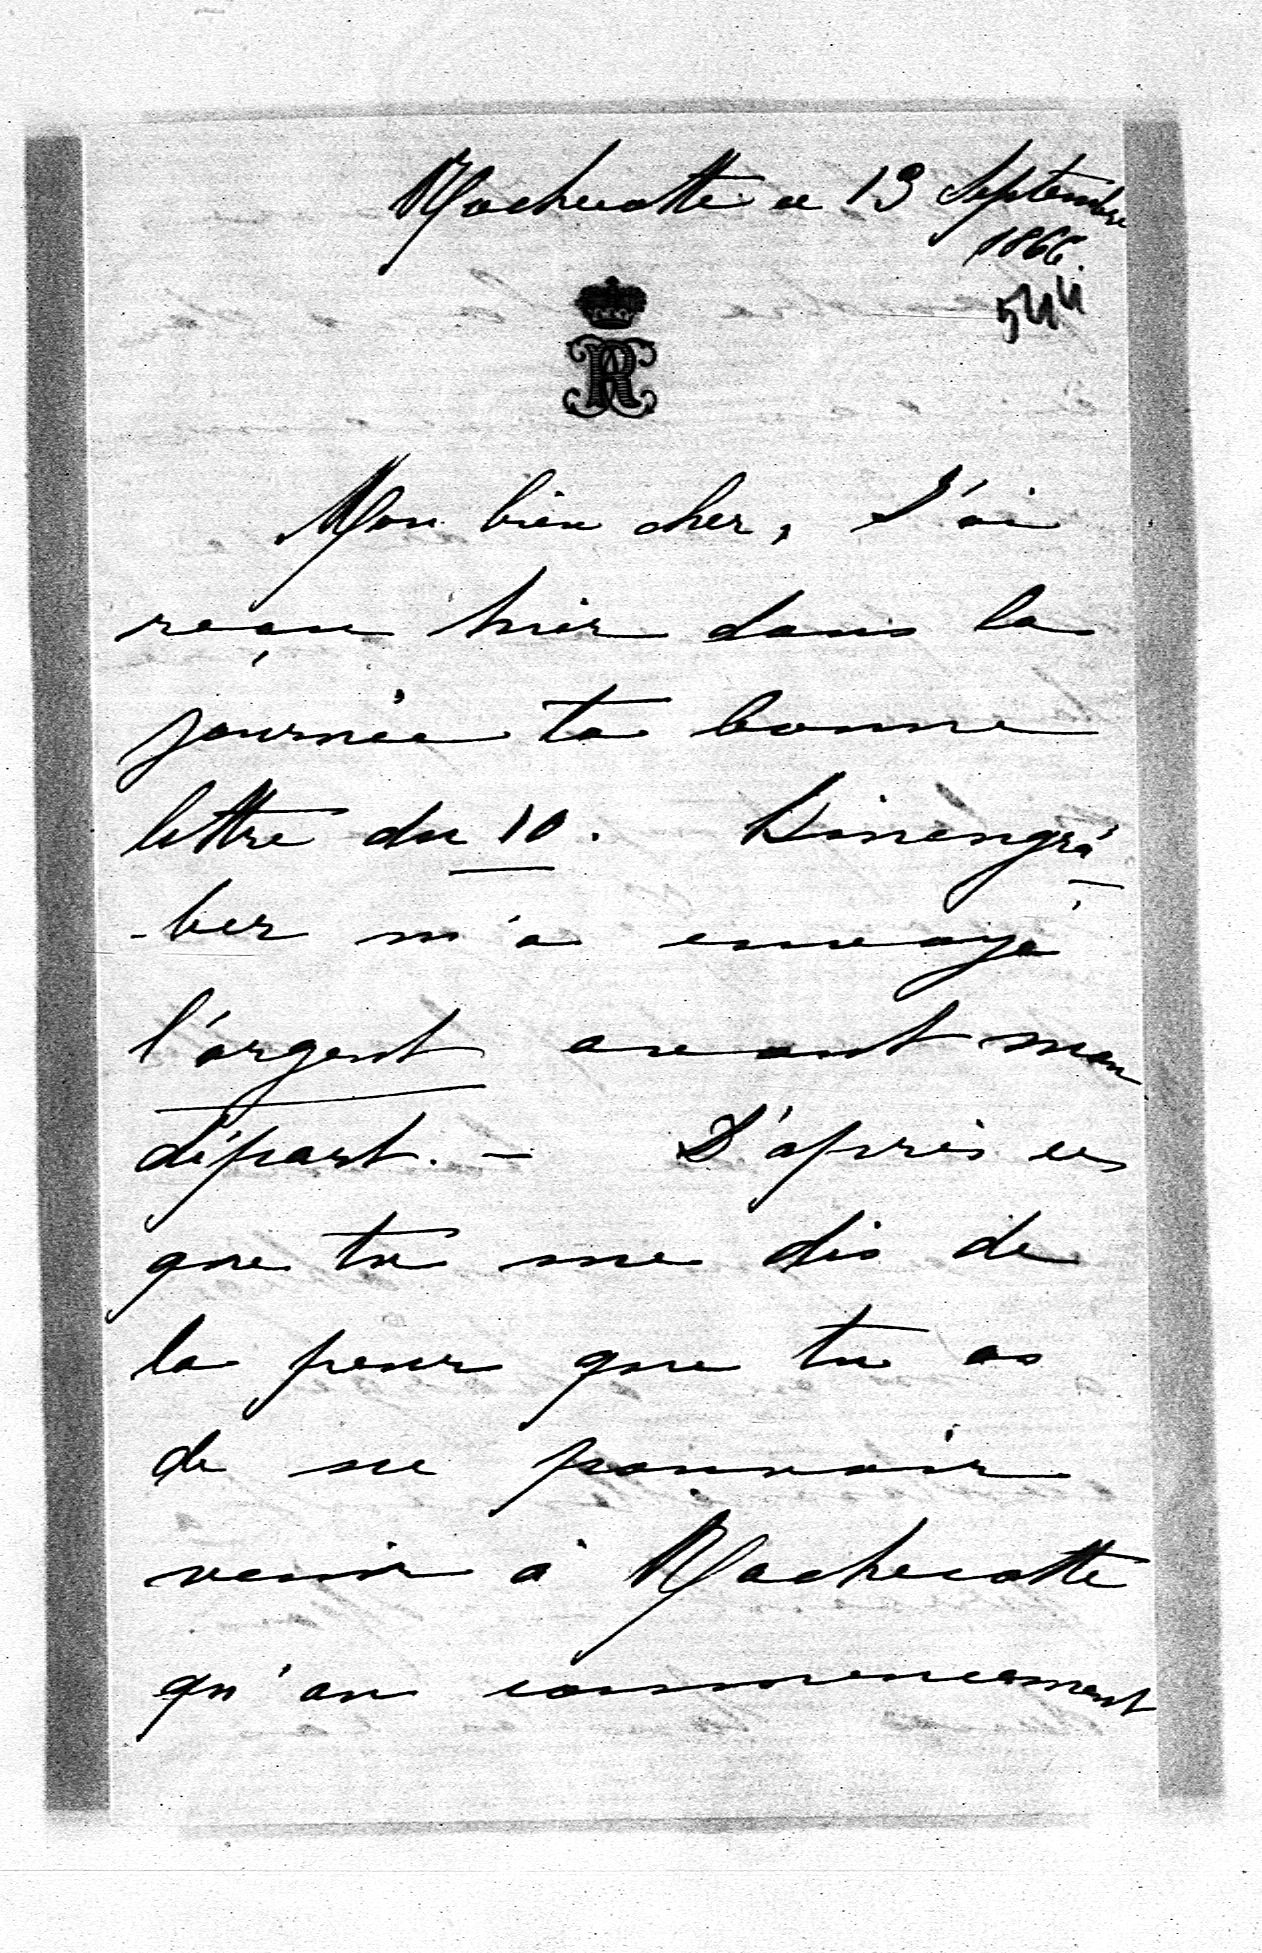 Rochecotte ce 13 Septembre
1866.
544
R
Mon bien cher, J'ai
reçu hier dans la
journée ta bonne
lettre du 10.
-ber m'a envoyé
l'argent avant mon
départ. — D'après ce
que tu me dis de
la peur que tu as
de ne pouvoir
venir à Rochecotte
qu'au commencement